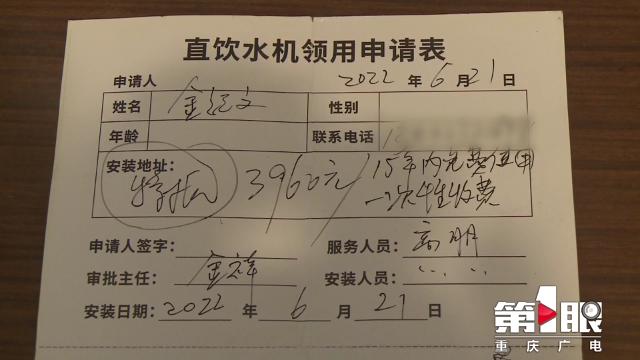 直饮水机领用申请表
申请人 2022 年 6 月 21 日
姓名 性别
年龄 联系电话
安装地址: 3960元/15年内免费使用
一次性收费
申请人签字: 服务人员: 高明
审批主任: 安装人员:
安装日期: 2022 年 6 月 21 日
第1眼
重庆广电